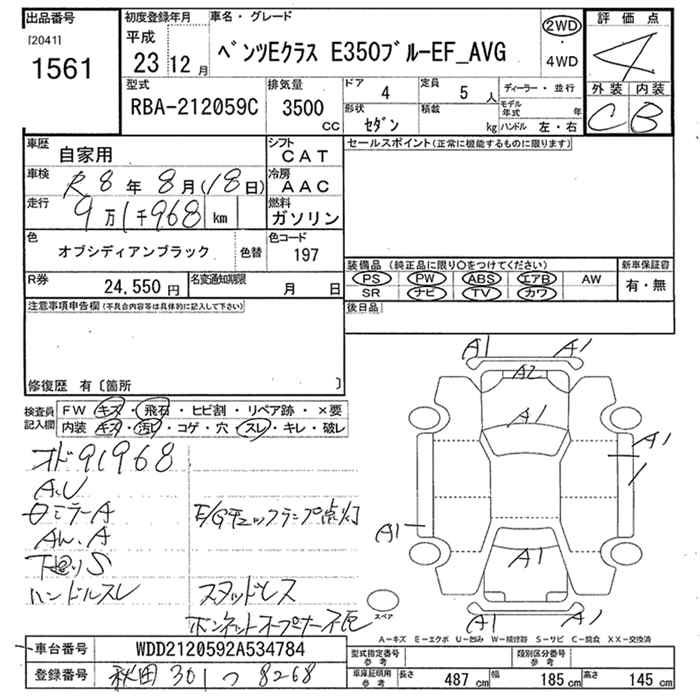 出品番号
[2041]
1561
初度登録年月
平成
23 12 月
車名・グレード
ベンツEクラス E350ブルーEF_AVG
2WD
・
4WD
評価点
4
外装 内装
C B
型式
RBA-212059C
排気量
3500
CC
ドア 4
定員 5 人
形状 セダン
積載 kg
ディーラー・並行
モデル年式 年
ハンドル 左・右
車歴 自家用
シフト CAT
車検 R 8 年 8 月(18日)
冷房 AAC
走行 9万1千968 km
燃料 ガソリン
色 オブシディアンブラック 色替
色コード 197
R券 24,550 円
名変通知期限 月 日
セールスポイント(正常に機能するものに限ります)
装備品(純正品に限り○をつけてください)
PS PW ABS エアB AW
SR ナビ TV カワ
新車保証書
有・無
後日品
注意事項申告欄(不具合内容等は具体的に記入して下さい)
修復歴 有〔箇所 〕
検査員記入欄
FW キズ・飛石・ヒビ割・リペア跡・×要
内装 キズ・汚レ・コゲ・穴・スレ・キレ・破レ
オド91968
A.U
ミラーA
AW.A
S
ハンドルスレ
E/Gチェックランプ点灯
スタッドレス
ボンネットオープナー不良
A1 A1
A2
A1
A1
A1
A1
A1 A1
スペア
A-キズ E-エクボ U-凹み W-補修跡 S-サビ C-腐食 XX-交換済
車台番号 WDD2120592A534784
登録番号 秋田 301 つ 8268
型式指定番号 参考
類別区分番号 参考
車庫証明用 参考
長さ 487 cm 幅 185 cm 高さ 145 cm